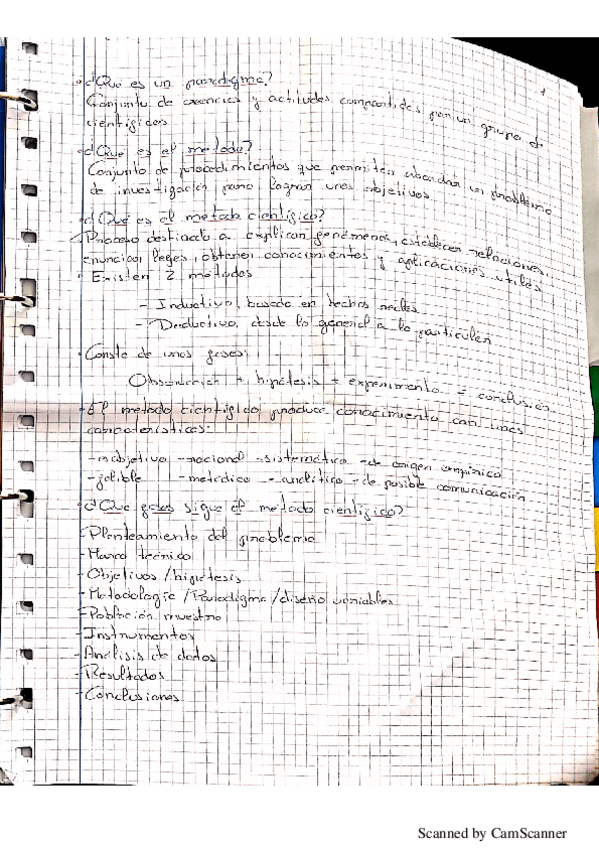 1
· ¿Que es un paradigma?
Conjunto de creencias y actitudes compartidas por un grupo de
cientificos
· ¿Qué es el metodo?
Conjunto de procedimientos que permiten abordar un problema
de investigación para lograr unos objetivos
· ¿Qué es el metodo cientifico?
Proceso destinado a explicar fenómenos, establecer relaciones,
enunciar leyes, obtener conocimientos y aplicaciones utiles
· Existen 2 metodos
- Inductivo, basado en hechos reales
- Deductivo, desde lo general a lo particular
· Consta de unas fases:
Observación + hipótesis + experimento = conclusion
· El metodo cientifico produce conocimiento con unas
caracteristicas:
- objetivo - racional - sistemático - de origen empirico
- falible - metódico - analitico - de posible comunicación
· ¿Que fases sigue el metodo cientifico?
- Planteamiento del problema
- Marco teórico
- Objetivos / hipótesis
- Metodologia / Paradigma / diseño variables
- Población muestra
- Instrumentos
- Análisis de datos
- Resultados
- Conclusiones
Scanned by CamScanner